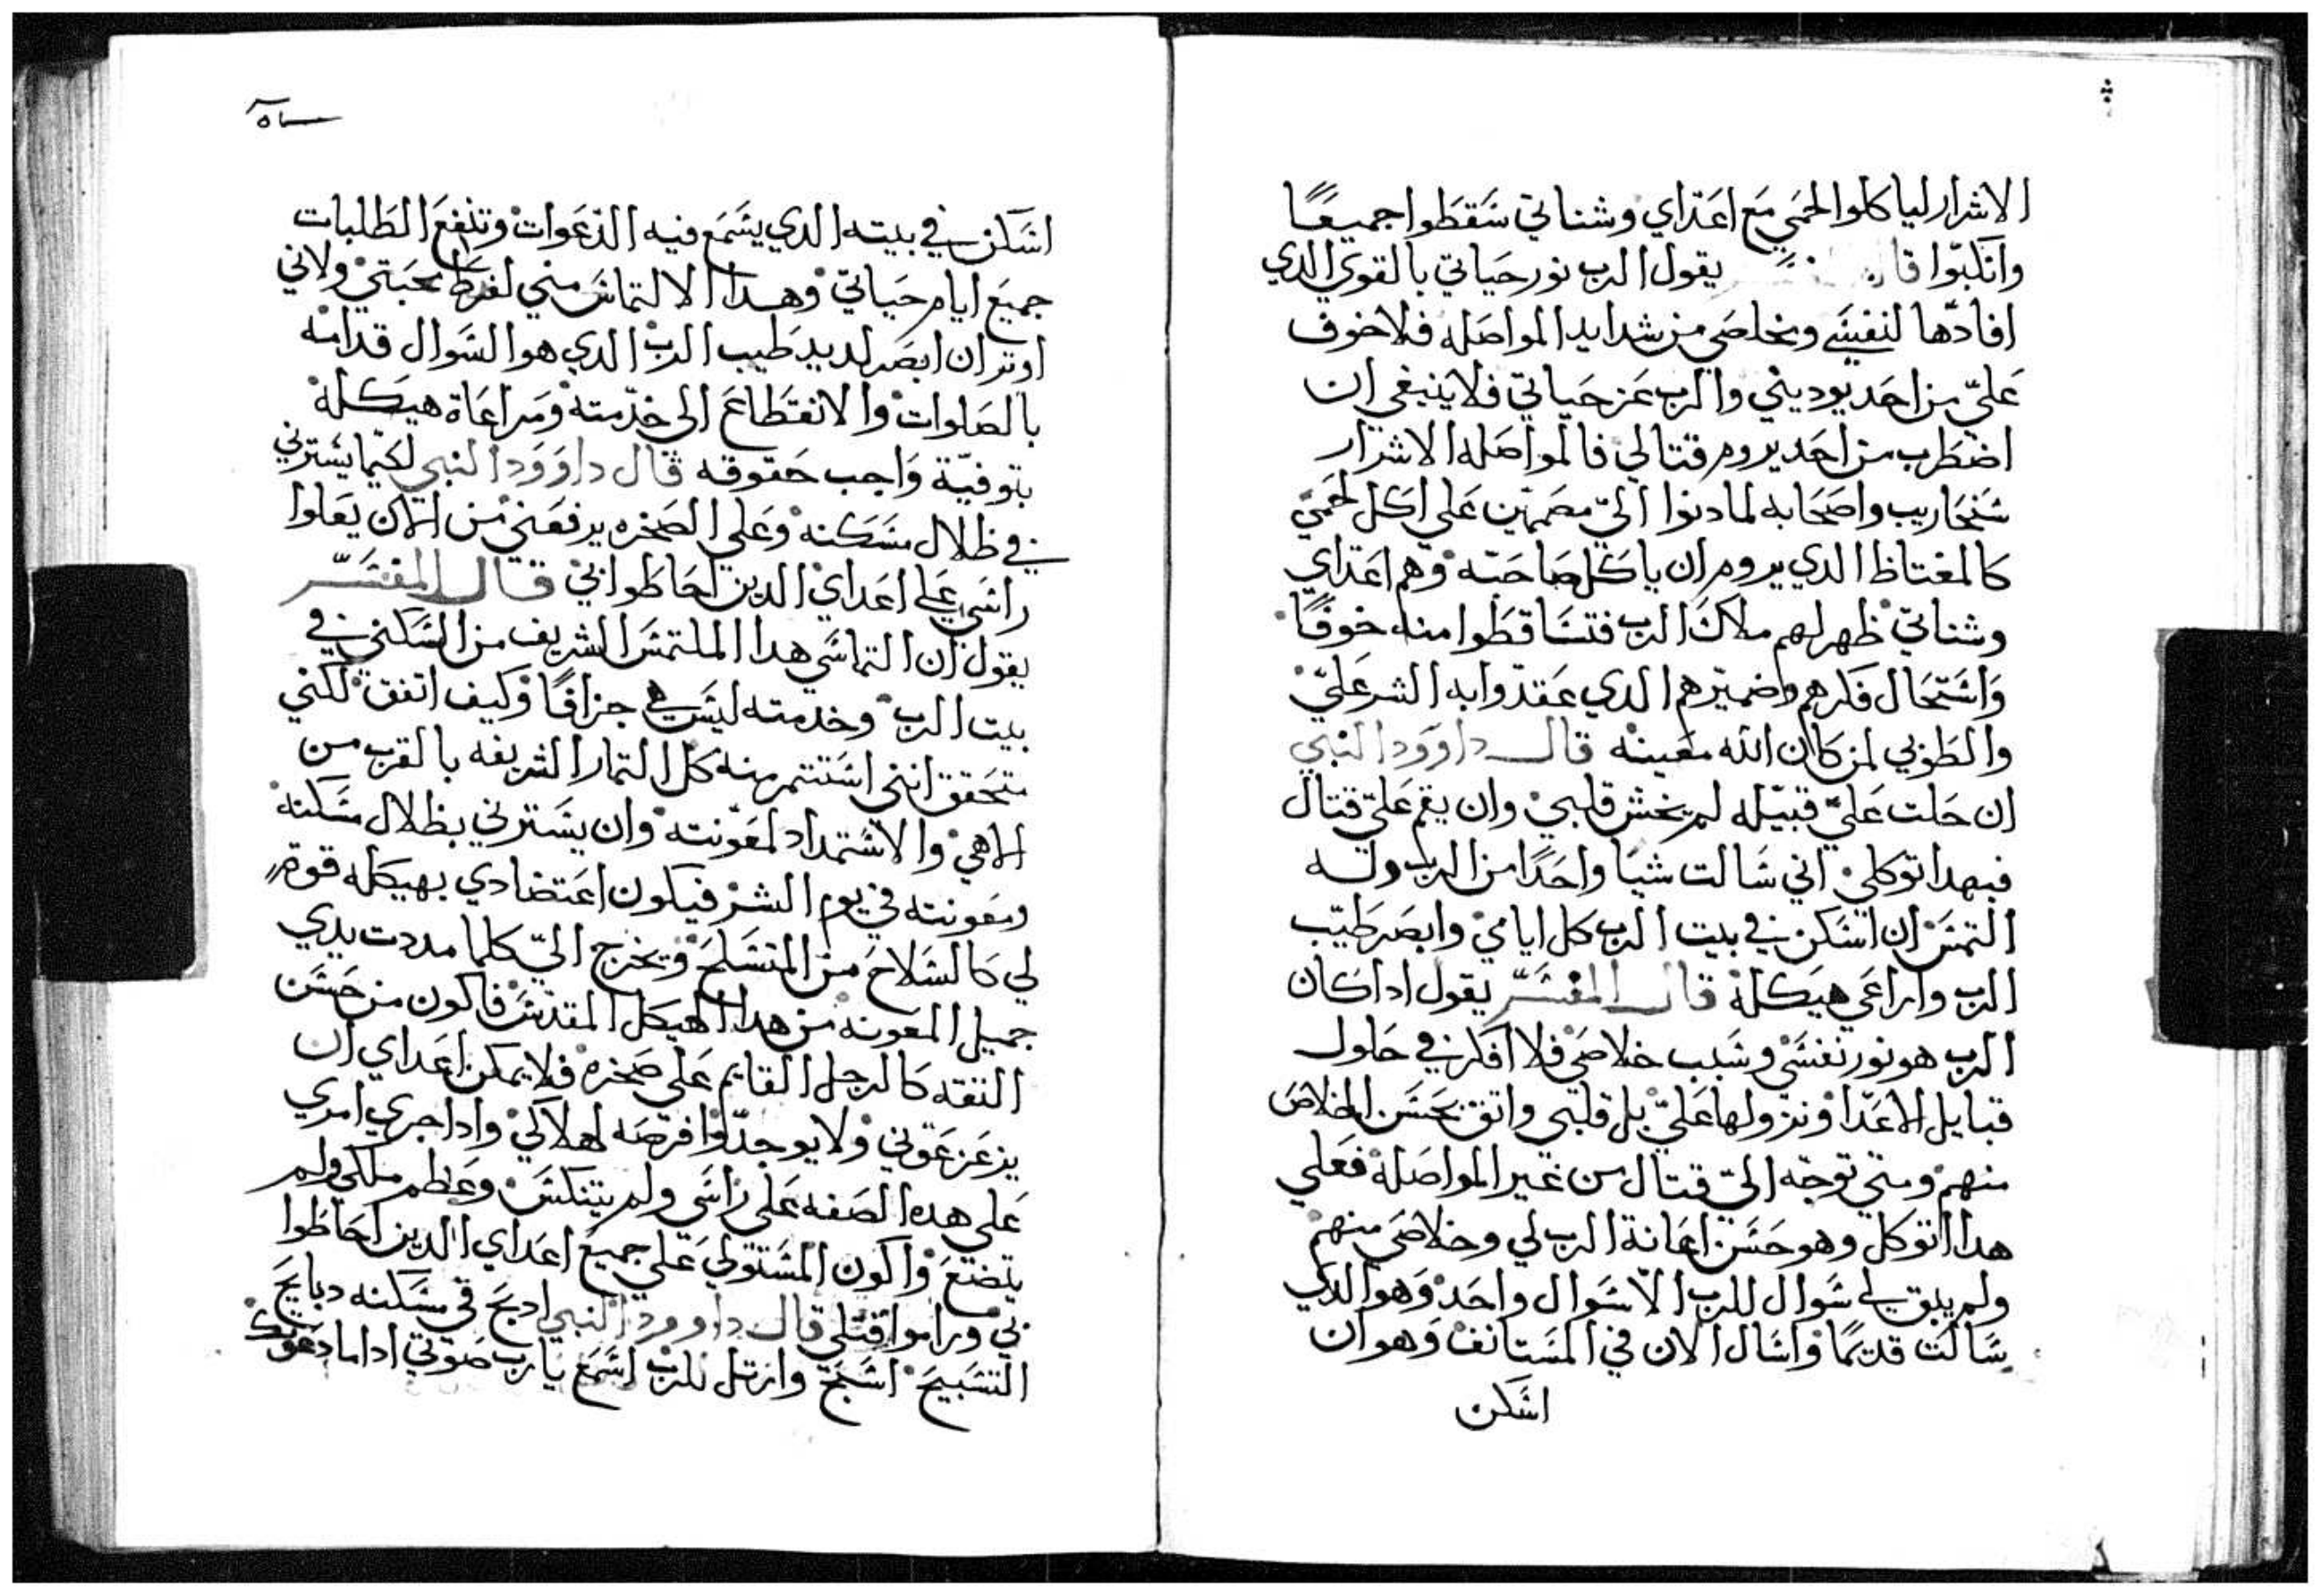 الاشرار لياكلوا لحمي مع اعداي وشناتي سقطوا جميعًا
وانكبّوا قال المفسر يقول الرب نور حياتي بالقوي الدي
افادها لنفسي ومخلصي من شدايد المواصله فلا خوف
عليّ من احد يوديني والرب عز حياتي فلا ينبغي ان
اضطرب من احد يروم قتالي فالمواصله الاشرار
سنحاريب واصحابه لما دنوا اليّ مصممين علي اكل لحمي
كالمغتاظ الدي يروم ان ياكل صاحبه وهم اعداي
وشناتي ظهر لهم ملاك الرب فتساقطوا منه خوفًا
واستحال فكرهم وضميرهم الدي عقدوا به الشر عليّ
والطوبي لمن كان الله معينه قال داوود النبي
ان حلت عليّ قبيله لم يخش قلبي وان يقم عليّ قتال
فبهدا توكلي اني سالت شيا واحدًا من الرب وله
التمس ان اسكن في بيت الرب كل ايامي وابصر طيّب
الرب واراعي هيكله قال المفسّر يقول ادا كان
الرب هو نور نفسي وسبب خلاصي فلا افكر في حلول
قبايل الاعدا ونزولها عليّ بل قلبي واتق بحسن الخلاص
منهم ومتي توجّه اليّ قتال من غير المواصله فعلي
هدا اتوكل وهو حسن اعانة الرب لي وخلاصي منهم
ولم يبق لي سوال للرب الّا سوال واحد وهو الدي
سالت قديمًا واسال الان في المستانف وهو ان
اسكن
اسكن في بيته الدي يسمع فيه الدعوات وتنفع الطلبات
جميع ايام حياتي وهدا الالتماس مني لفرط محبتي ولاني
اوتر ان ابصر لديد طيب الرب الدي هو السوال قدامه
بالصلوات والانقطاع الي خدمته ومراعاة هيكله
بتوفيّة واجب حقوقه قال داوود النبي لكيما يسترني
في ظلال مسكنه وعلي الصخره يرفعني من الان يعلوا
راسي علي اعداي الدين احاطوا بي قال المفسّر
يقول ان التماسي هدا الملتمس الشريف من السكني في
بيت الرب وخدمته ليس هي جزافًا وكيف اتفق لكني
متحقق انني استتمر منه كل التمار الشريفه بالقرب من
الاهي والاستمداد لمعونته وان يسترني بظلال مسكنه
ومعونته في يوم الشر فيكون اعتضادي بهيكله قوة
لي كالسلاح من المتسلح ويخرج اليّ كلما مددت يدي
جميل المعونه من هدا الهيكل المقدس فاكون من حسن
التقه كالرجل القايم علي صخره فلا يمكن اعداي ان
يزعزعوني ولا يوجدّوا فرصه لهلاكي وادا جري امري
علي هده الصفه علي راسي ولم يتنكس وعظم ملكي ولم
يتضع واكون المستولي علي جميع اعداي الدين احاطوا
بي وراموا قتلي قال داوود النبي ادبح في مسكنه دبايح
التسبيح اسبح وارتل للرب اسمع يا رب صوتي ادا ما دعوتك